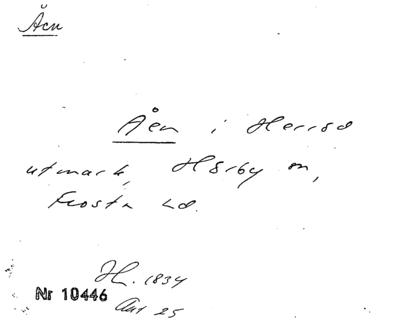 Åen
Åen i Herrsd
utmark, Hörby sn,
Frosta hd.
H. 1834
Nr 10446
Akt 25